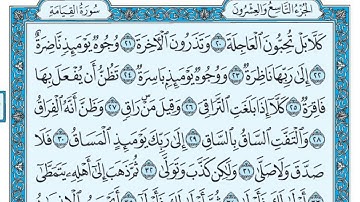 الجزء التاسع والعشرون
سورة القيامة
كَلَّا بَلْ تُحِبُّونَ الْعَاجِلَةَ ۝٢٠ وَتَذَرُونَ الْآخِرَةَ ۝٢١ وُجُوهٌ يَوْمَئِذٍ نَّاضِرَةٌ
۝٢٢ إِلَىٰ رَبِّهَا نَاظِرَةٌ ۝٢٣ وَوُجُوهٌ يَوْمَئِذٍ بَاسِرَةٌ ۝٢٤ تَظُنُّ أَن يُفْعَلَ بِهَا
فَاقِرَةٌ ۝٢٥ كَلَّا إِذَا بَلَغَتِ التَّرَاقِيَ ۝٢٦ وَقِيلَ مَنْ رَاقٍ ۝٢٧ وَظَنَّ أَنَّهُ الْفِرَاقُ
۝٢٨ وَالْتَفَّتِ السَّاقُ بِالسَّاقِ ۝٢٩ إِلَىٰ رَبِّكَ يَوْمَئِذٍ الْمَسَاقُ ۝٣٠ فَلَا
صَدَّقَ وَلَا صَلَّىٰ ۝٣١ وَلَٰكِن كَذَّبَ وَتَوَلَّىٰ ۝٣٢ ثُمَّ ذَهَبَ إِلَىٰ أَهْلِهِ يَتَمَطَّىٰ